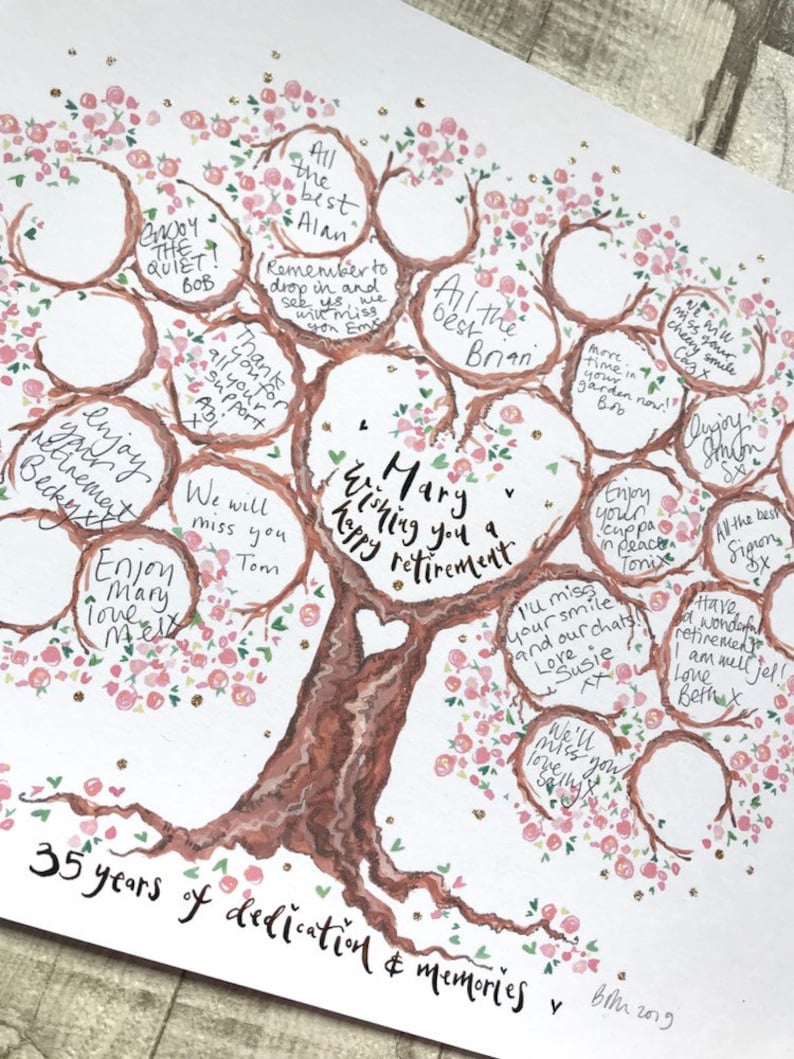 All
the
best
Alan
ENJOY
THE
QUIET!
BOB
Remember to
drop in and
see us, we
will miss
you Emx
All the
best
Brian
We will
miss your
cheery smile
x
more
time in
your
garden now!!
Bob
Thank
you for
all your
support
x
enjoy
your
retirement
Becky xx
We will
miss you
Tom
Enjoy
Mary
love
Mel x
Mary
Wishing you a
happy retirement
enjoy
Simon
Sx
Enjoy
your
cuppa
in peace
Toni x
All the best
Simon
Dx
I'll miss
your smile
and our chats!
Love
Susie
xx
Have
a wonderful
retirement
I am well jel!
Love
Beth x
We'll
miss you
love
Sally x
35 years of dedication & memories
2019